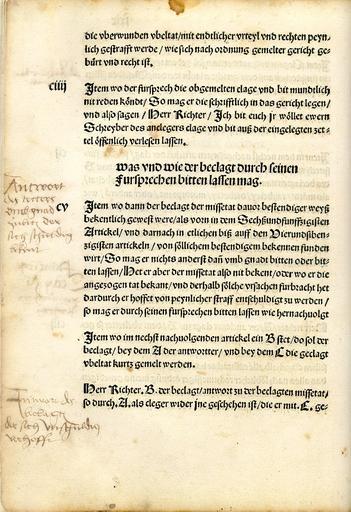 die vberwunden vbeltat/mit endtlicher vrteyl vnd rechten peyn-
lich gestrafft werde/wie sich nach ordnung gemelter gericht ge-
bürt vnd recht ist.
ciiij Item wo der fursprech die obgemelten clage vnd bit muntlich
nit reden köndt/So mag er die schrifftlich in das gericht legen/
vnd also sagen/Herr Richter/Ich bit euch jr wöllet ewern
Schreyber des anclegers clage vnd bit auß der eingelegten zet-
tel öffentlich verlesen lassen.
was vnd wie der beclagt durch seinen
Fursprechen bitten lassen mag.
cv Item wo dann der beclagt der missetat dauor bestendiger weyß
bekentlich gewest were/als vorn in dem Sechßundfunffzigisten
Artickel/vnd darnach in etlichen biß auff den Vierundsiben-
zigisten artickeln/von söllichem bestendigem bekennen funden
wirt/So mag er nichts anderst dañ vmb gnadt bitten oder bit-
ten lassen/Het er aber der missetat also nit bekent/oder wo er die
angezogen tat bekant/vnd derhalb sölche vrsachen furbracht het
dardurch er hoffet von peynlicher straff entschuldigt zu werden/
so mag er durch seinen fursprechen bitten lassen wie hernachuolgt
Item wo im nechst nachuolgenden artickel ein B stet/do sol der
beclagt/bey dem A der antwortter/vnd bey dem C die geclagt
vbeltat kurtz gemelt werden.
Herr Richter. B. der beclagt/antwort zu der beclagten missetat/
so durch. A. als cleger wider jne geschehen ist/die er mit. C. ge-